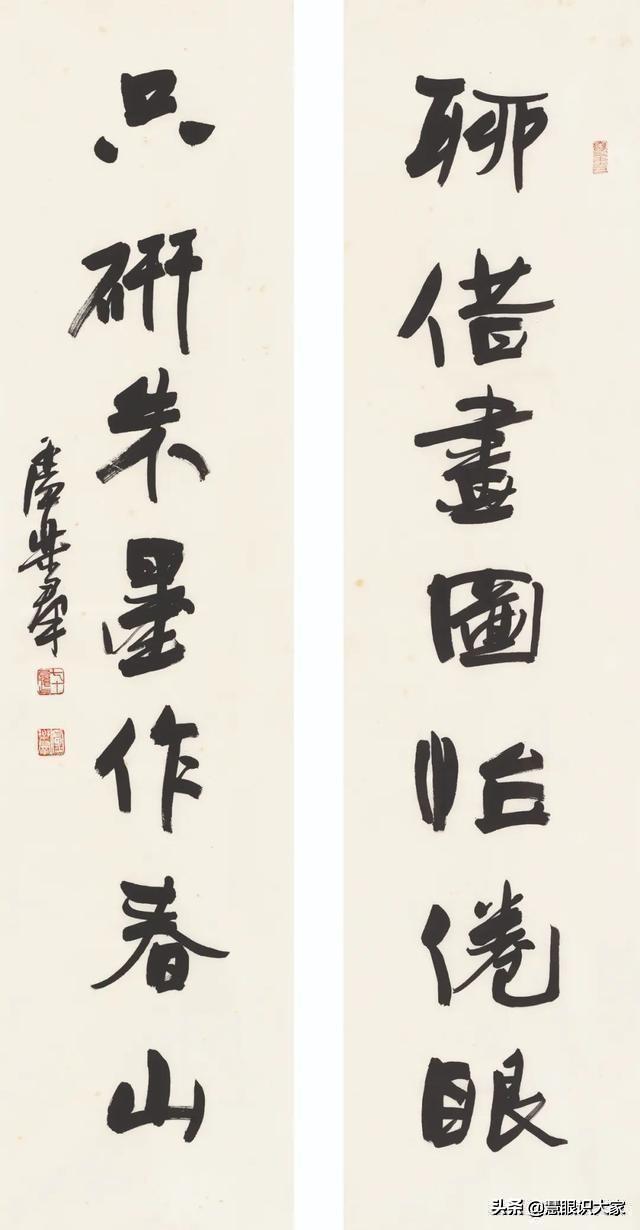 聊借畫圖怡倦眼
只研朱墨作春山
盧樂群
头条 @慧眼识大家